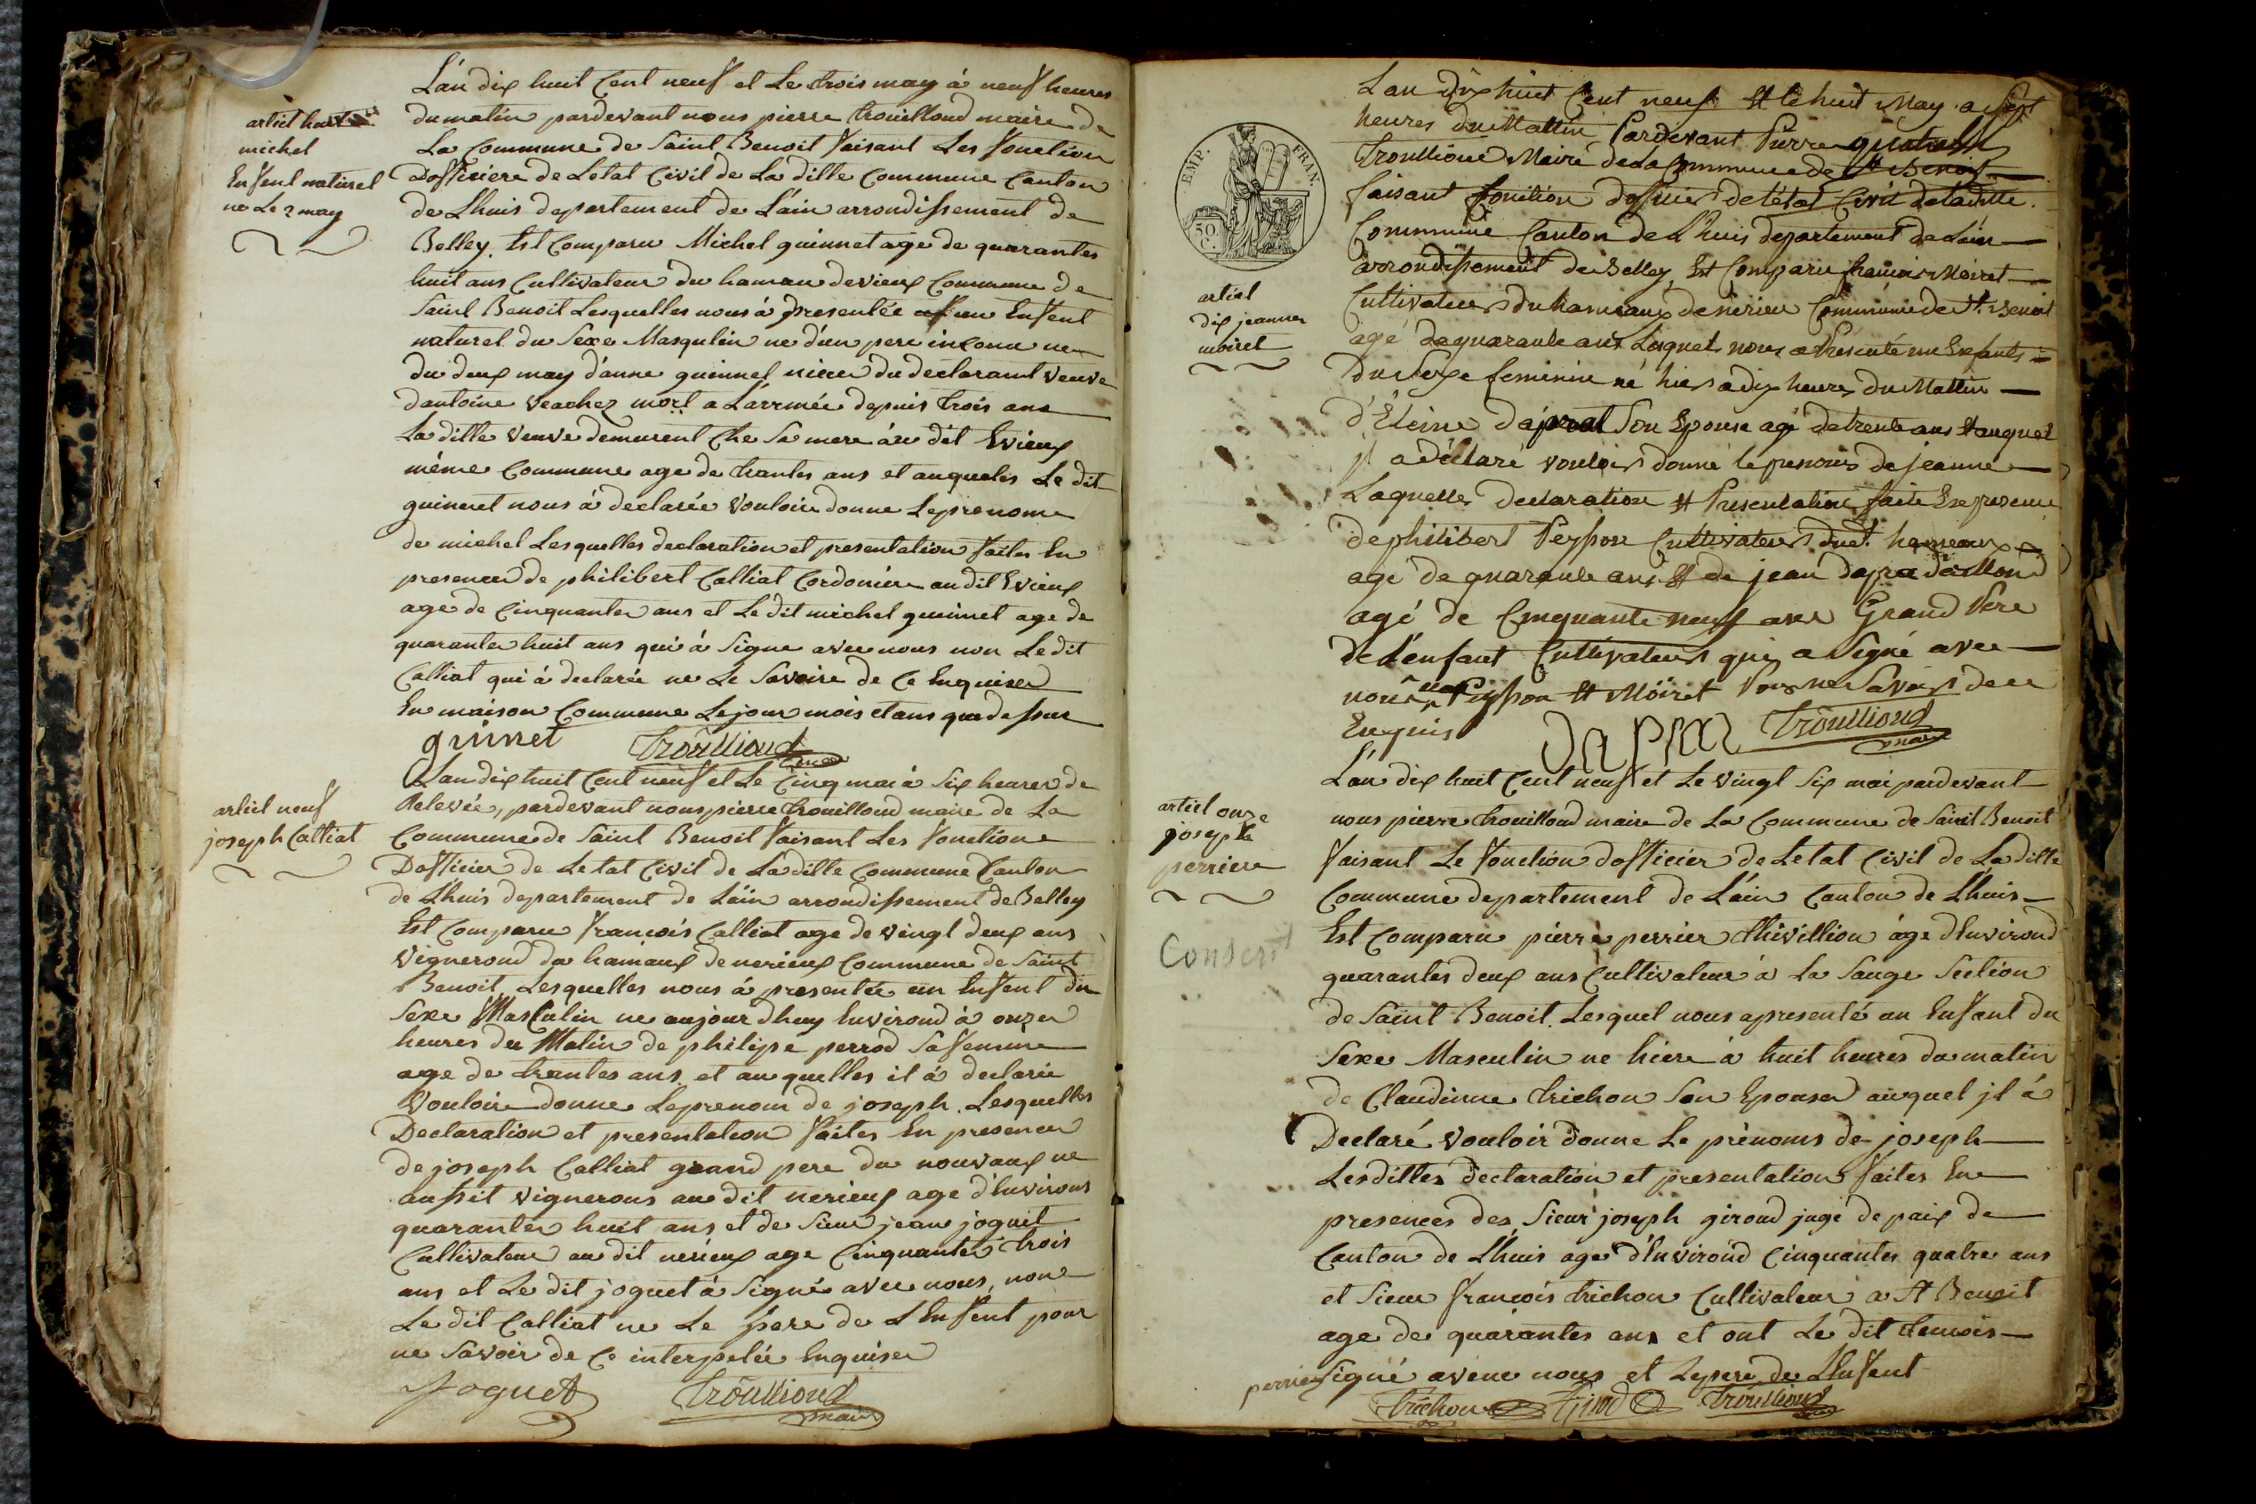 artiel huit
michel
Enfent naturel
ne Le 2 may
L'an dix huit Cent neuf et Le trois may à neuf heures
du matin pardevant nous pierre trouilloud maire de
La Commune de Saint Benoit faisant Les fonction
Dofficiere de Letat Civil de La ditte Commune Canton
de Lhuis departement de L'ain arrondissement de
Belley. Est Comparu Michel guinnet age de quarantes
huit ans Cultivateur du hamau devieux Commune de
Saint Benoit Lesquelles nous à presentée un Enfent
naturel du Sexe Masqulin ne d'un pere inconu ne
du deux may d'anne guinnel niece du declarant veuve
dantoine veachez mort a Larrmée depuis trois ans
La ditte veuve demurent Che Sa mere au dit Evieux
même Commune age de trantes ans et auqueles Le dit
guinnet nous à declarée vouloire donne Leprenome
de michel Lesquelles declaration et presentation faites En
presence de philibert Calliat Cordoniere audit Evieux
age de Cinquantes ans et Le dit michel guinnet age de
quarantes huit ans qui à Signe avec nous non Le dit
Calliat qui à declarée ne Le Savoire de Ce Enquised
En maison Commune Lejour mois et ans que dessus
guinet Trouilliound
maire
artiel neuf
joseph Calliat
Lan dix huit Cent neuf et Le Cinq mai à Six heures de
Relevée, pardevant nous pierre trouilloud maire de La
Commune de Saint Benoit faisant Les fonction
Dofficier de Letat Civil de Laditte Commune Canton
de Lhuis departement de Lain arrondissement de Belley
Est Comparu francois Calliat age de vingt deux ans
vigneround du hamaux de nerieux Commune de Saint
Benoit, Lesquelles nous à presentée un Enfent du
Sexe Masculin ne aujourdhuy Enviround à onzes
heures du Matin de philipe perrod Safemme
age de trantes ans, et au quelles il à declarée
Vouloire donne Leprenom de joseph. Lesquelles
Declaration et presentation faites En presence
de joseph Calliat grand pere du nouvaux ne
aussit vignerons au dit nerieux age d'Environs
quarantes huit ans et de Sieur jean joguet
Cultivateur au dit nerieux age Cinquantes trois
ans et Le dit joguet à Signé avec nous, non
Le dit Calliat ne Le pere de LEnfent pour
ne Savoir de Ce interpelée Enquised
Joguet Trouilliound
maire
EMP. FRAN.
50 C.
artiel
dix jeanne
moiret
Lan dix huit Cent neuf Et le huit May a Sept
heures du Mattin Pardevant Pierre
Troullioud Maire de la Commune de St Benoit
faisant fonction doffiier de létat Civil deladitte
Commune Canton de Lhuis departement de Lain
arrondissement de Belley, Est Comparu françois Moiret
Cultivateur du hameaux de nerieu Commune de St. Benoit
agé de quarante ans Lequel nous a Présenté un Enfants
Du Sexe feminin né hier a dix heures Du Mattin
d'Etiene Daprat Son Epouse agé de trente ans Et auquel
jl a déclaré vouloir donné le prenoms de jeanne
Laquelle Declaration Et Presentation faite En presence
de philibert Peysson Cultivateur dudt. hameaux
agé de quarante ans Et de jean
agé de Cinquante neuf ans Grand Pere
de L'enfant Cultivateur qui a Signé avec
nous non Peysson Et Moiret Pour ne Savoir de ce
Enquis DaPrat Troulliound
maire
artiel onze
joseph
perriere
Conscrit
L'an dix huit Cent neuf et Le vingt Six mai pardevant
nous pierre trouilloud maire de La Commune de Saint Benoit
faisant Le fonction dofficier de Letat Civil de La ditte
Commune departement de L'ain Canton de Lhuis
Est Comparu pierre perrier thivillion âge d'Enviround
quarantes deux ans Cultivateur à La Sauge Section
de Saint Benoit. Lesquel nous apresenté un Enfant du
Sexe Masculin ne hiere à huit heures du matin
de Claudinne trichon Son Epouse auquel jl à
Declaré vouloir donne Le prénoms de joseph
Lesdittes declaration et presentation faites En
presences des Sieur joseph giroud juge de paix de
Canton de Lhuis age d'Enviround Cinquantes quatre ans
et Sieur francois trichon Cultivateur a St Benoit
age de quarantes ans et ont Le dit temois
Signé avene nous et Lepere de LEnfent
perrier Trichon Giroud Troulliound